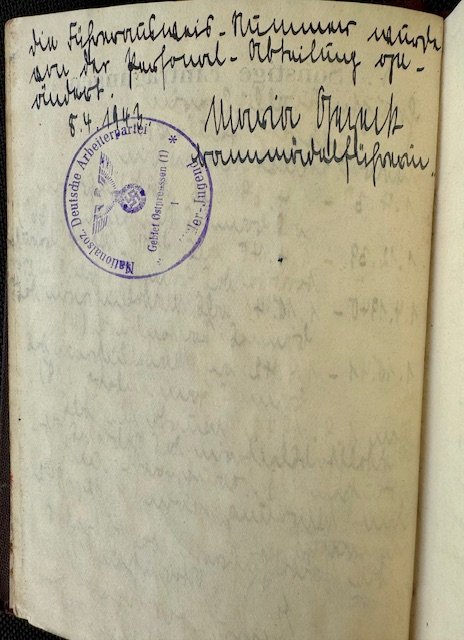 die Führerausweis-Nummer wurde
von der Personal-Abteilung ge-
ändert.
8.4.1942.
Maria
Nationalsoz. Deutsche Arbeiterpartei
Hitler-Jugend
Gebiet Ostpreussen (1)
1
*